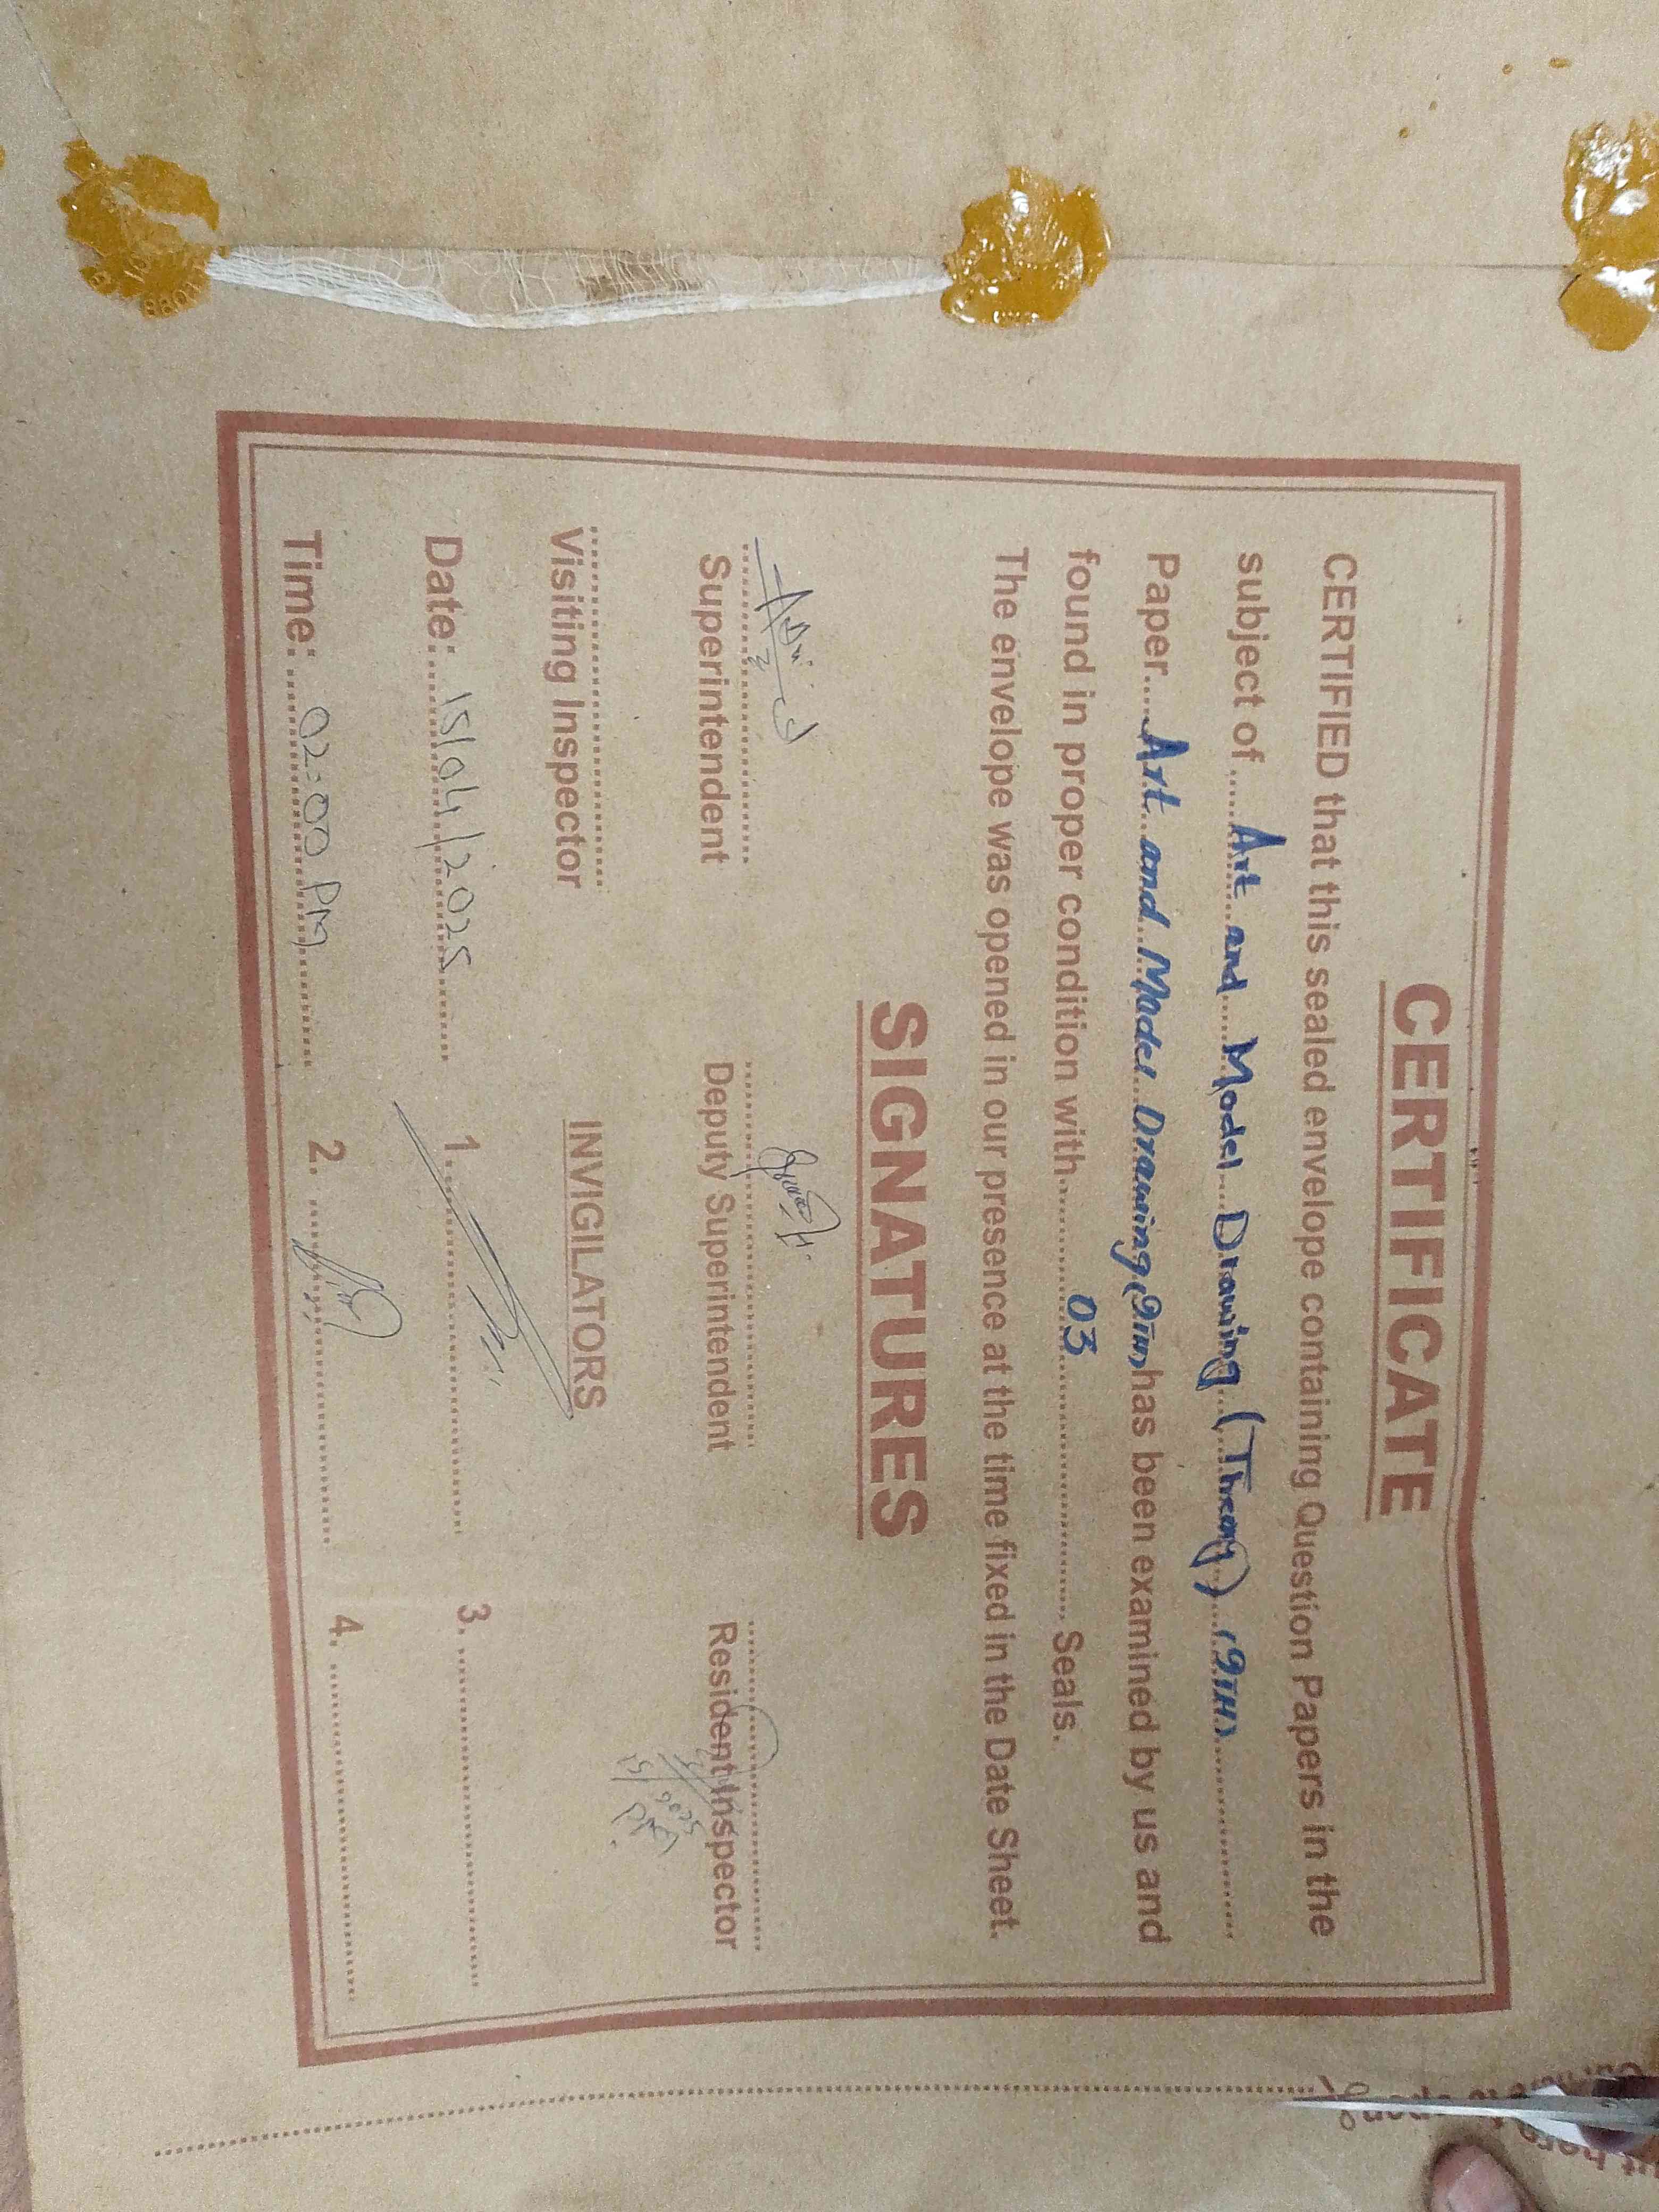 CERTIFICATE
CERTIFIED that this sealed envelope containing Question Papers in the
subject of Art and Model Drawing (Theory) (9TH)
Paper Art and Model Drawing (9TH) has been examined by us and
found in proper condition with 03 Seals.
The envelope was opened in our presence at the time fixed in the Date Sheet.
SIGNATURES
Superintendent Deputy Superintendent Resident Inspector
Visiting Inspector INVIGILATORS
Date: 15/04/2025 1. 3.
Time: 02:00 PM 2. 4.